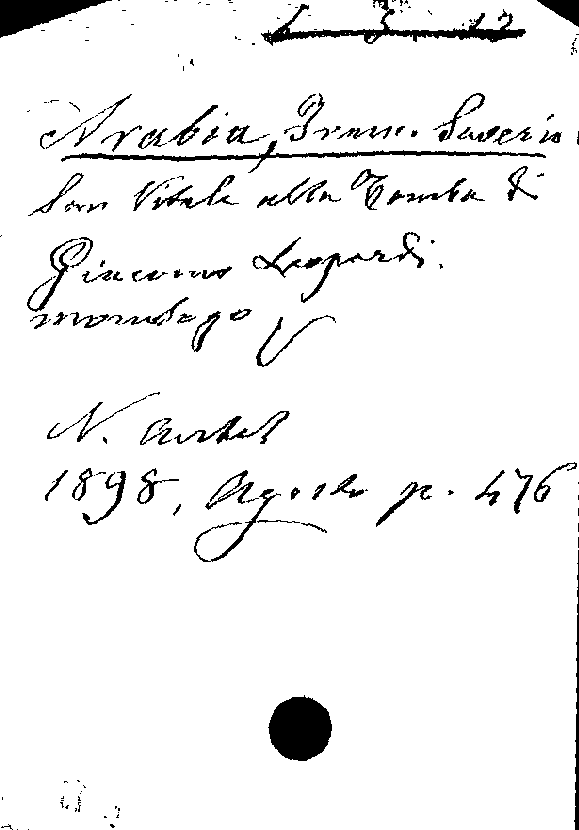 Arabia, Franc. Saverio
San Vitale alla Tomba di
Giacomo Leopardi.
N. Antol
1898, Agosto p. 476